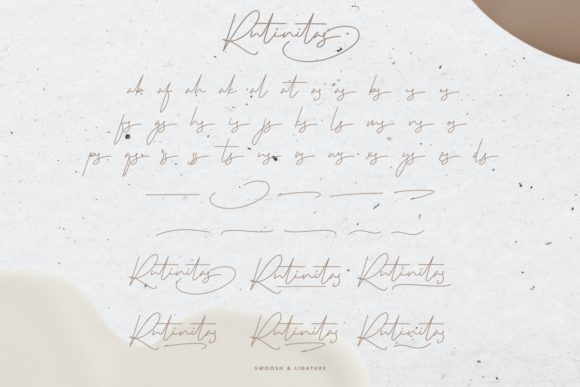 Rutinitas
ab af ah ak al at as bs cs es
fs gs hs is js ks ls ms ns os
ps qs rs ss ts us vs ws xs ys zs ds
Rutinitas Rutinitas Rutinitas
Rutinitas Rutinitas Rutinitas
SWOOSH & LIGATURE